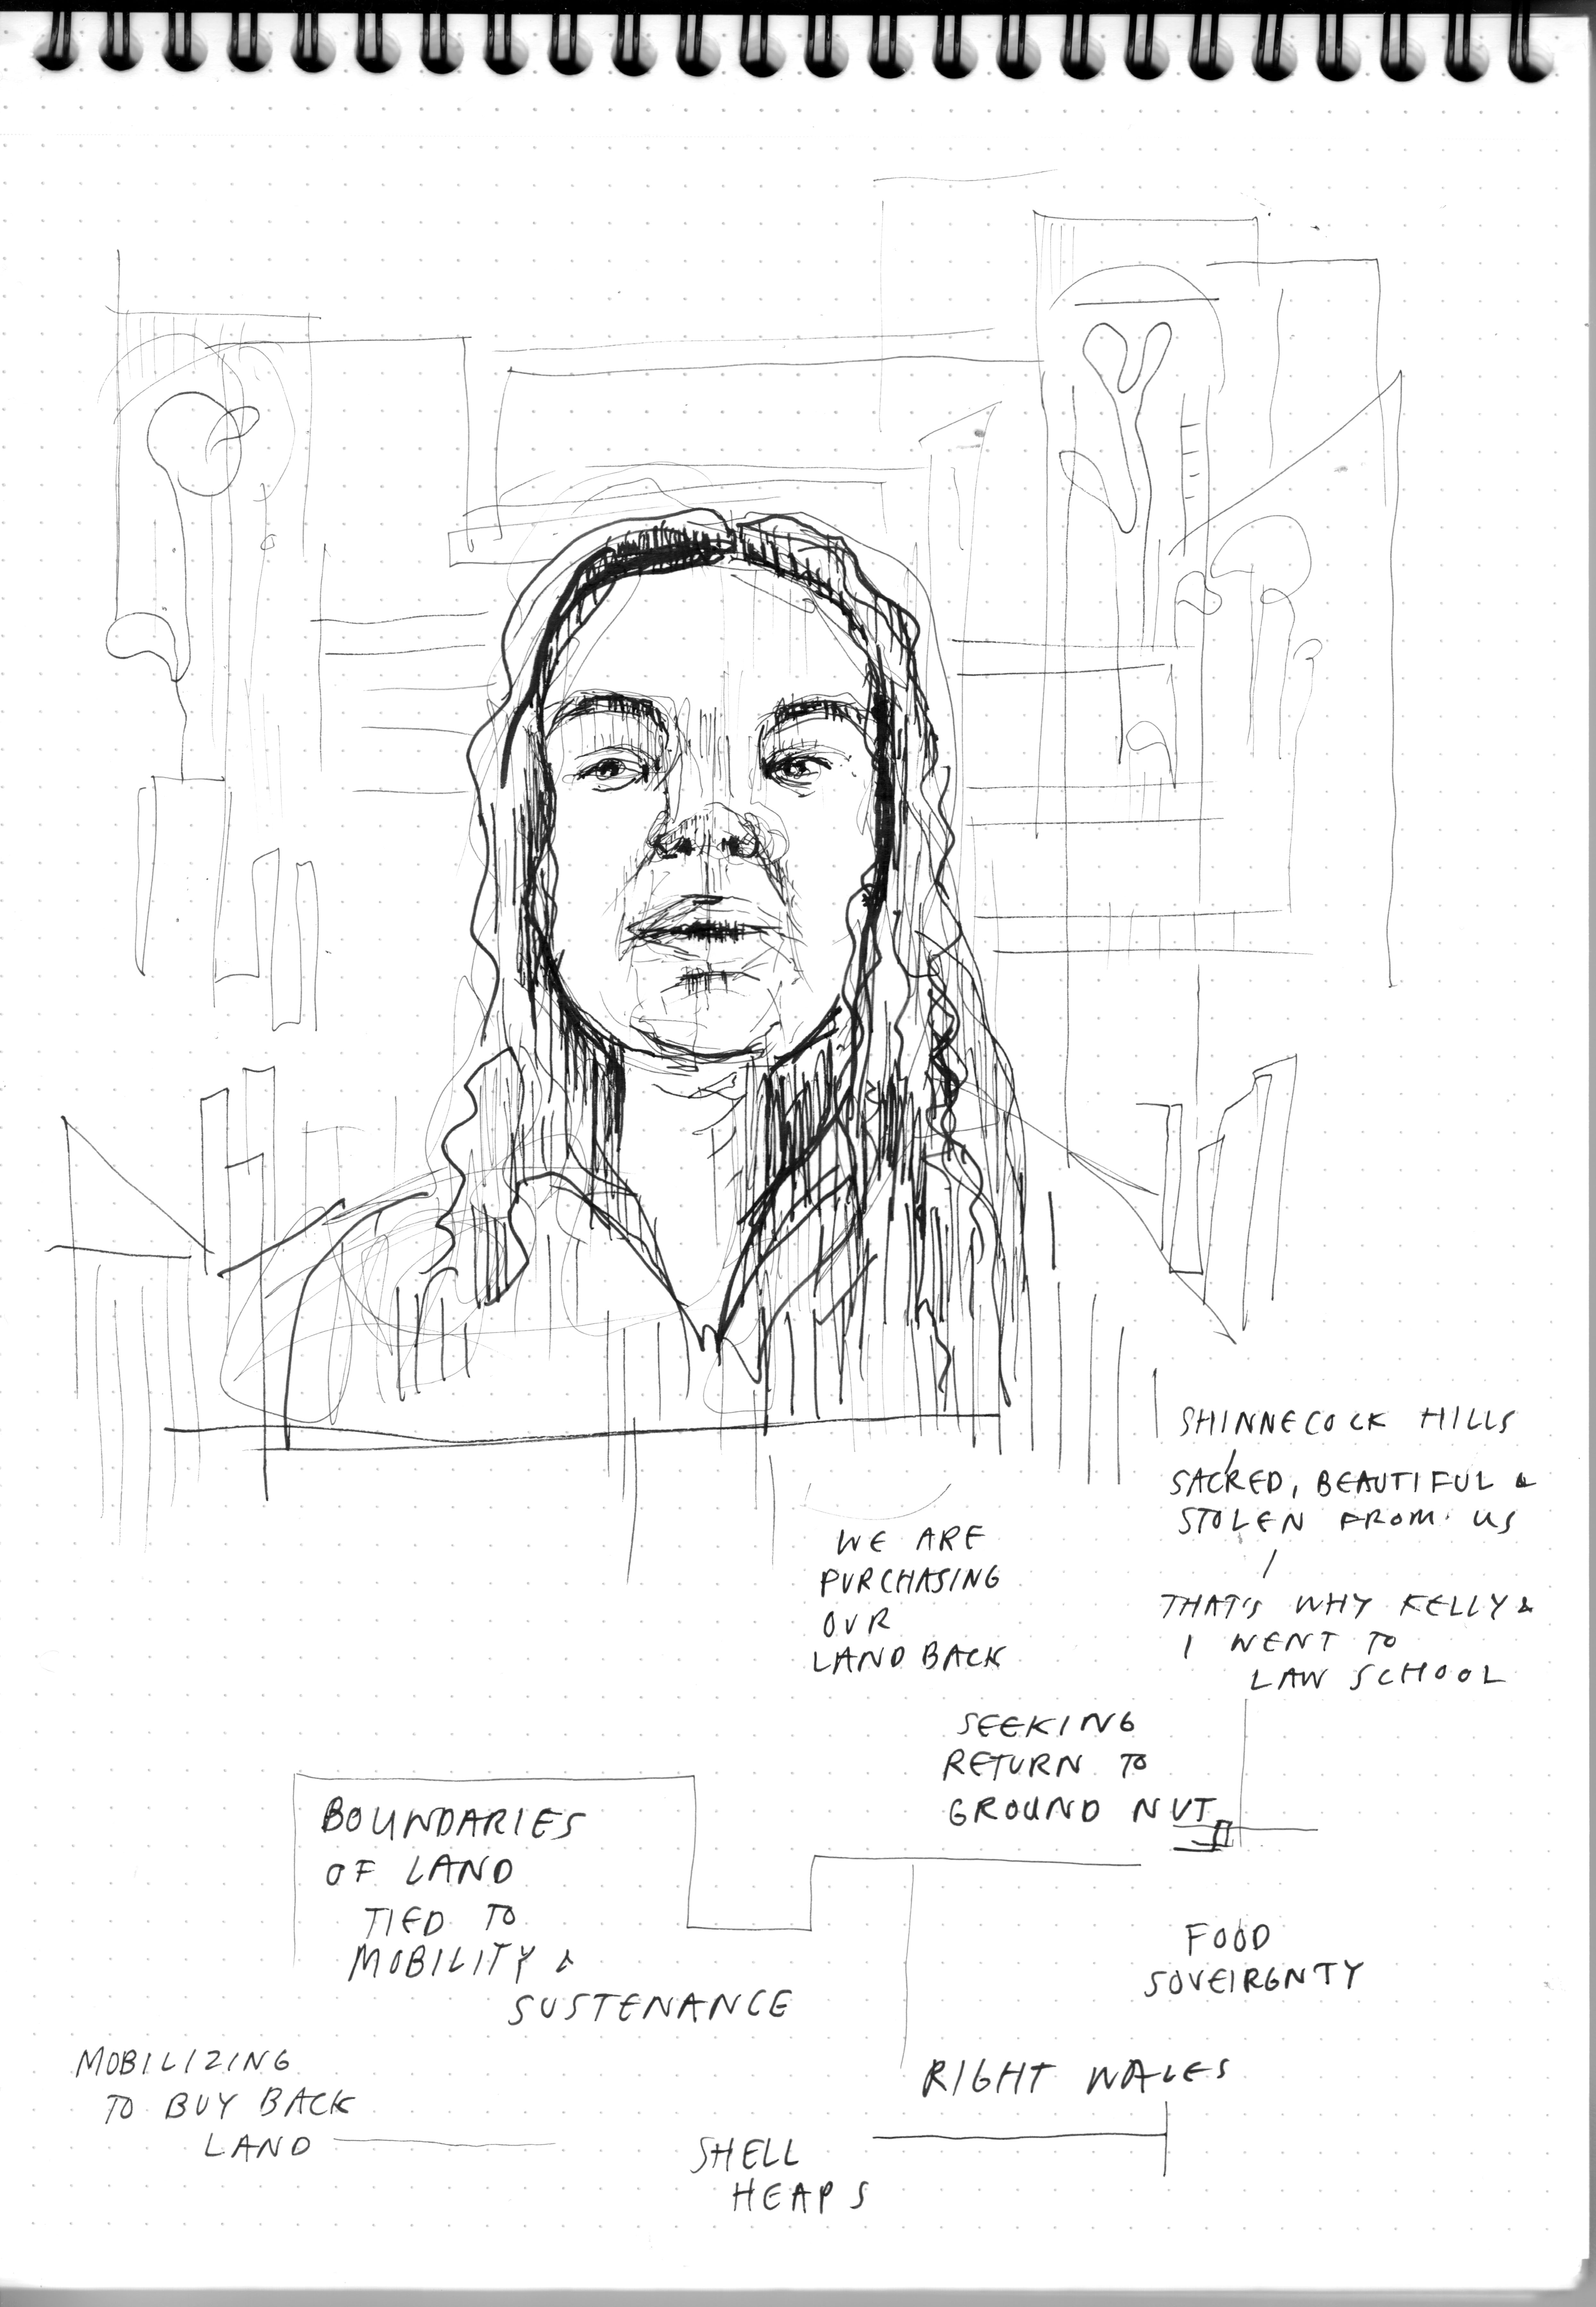 SHINNECOCK HILLS
SACRED, BEAUTIFUL &
STOLEN FROM US
THAT'S WHY KELLY &
I WENT TO
LAW SCHOOL
WE ARE
PURCHASING
OUR
LAND BACK
SEEKING
RETURN TO
GROUND NUT
BOUNDARIES
OF LAND
TIED TO
MOBILITY &
SUSTENANCE
FOOD
SOVEIRGNTY
MOBILIZING
TO BUY BACK
LAND
RIGHT WALES
SHELL
HEAPS